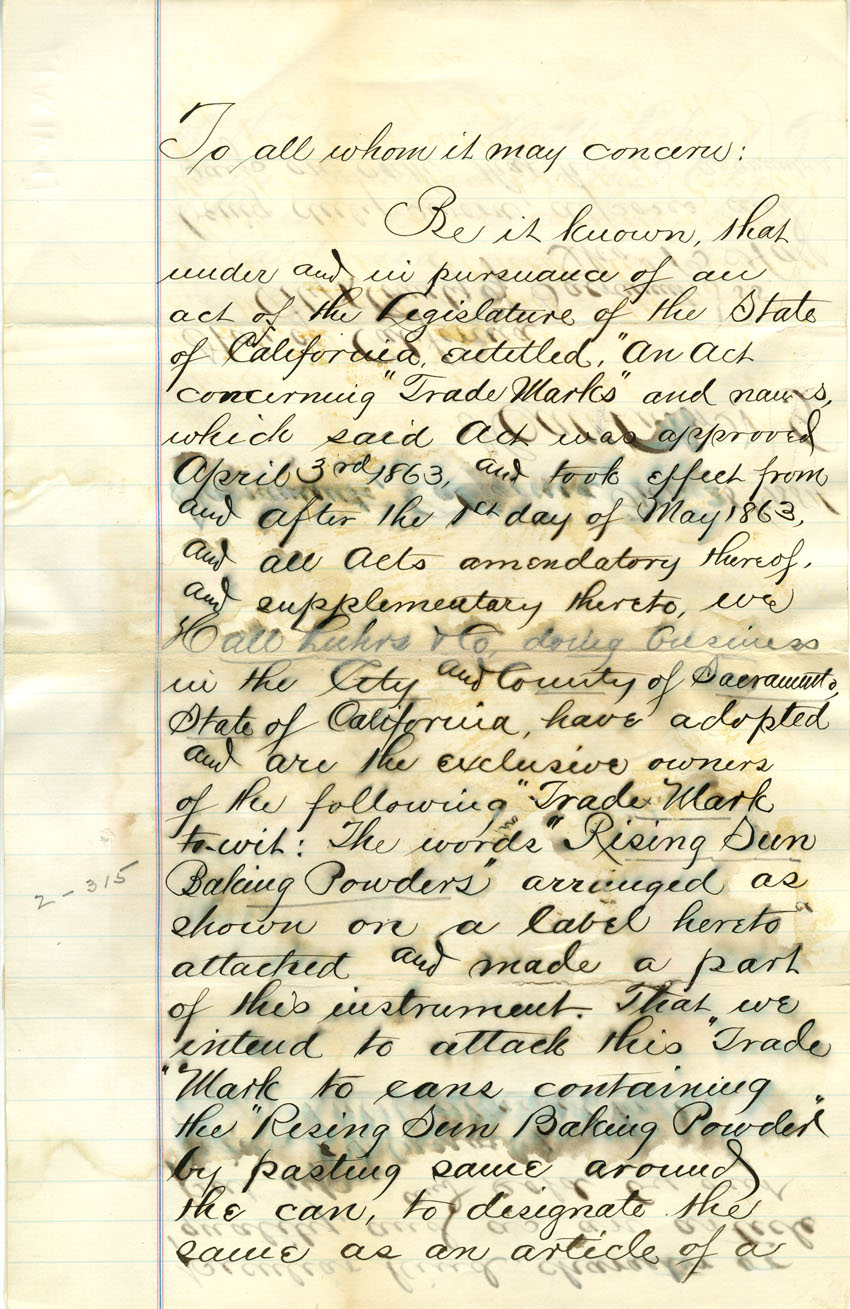 To all whom it may concern:
Be it known, that
under and in pursuance of an
act of the Legislature of the State
of California, entitled, "An Act
concerning "Trade Marks" and names,
which said Act was approved
April 3rd 1863, and took effect from
and after the 1st day of May 1863,
and all Acts amendatory thereof,
and supplementary thereto, we
Hall Luhrs & Co, doing business
in the City and County of Sacramento,
State of California, have adopted
and are the exclusive owners
of the following "Trade Mark
to-wit: The words "Rising Sun
Baking Powders" arranged as
2-315
shown on a label hereto
attached and made a part
of this instrument. That we
intend to attack this "Trade
"Mark to cans containing
the "Rising Sun Baking Powder"
by pasting same around
the can, to designate the
same as an article of a